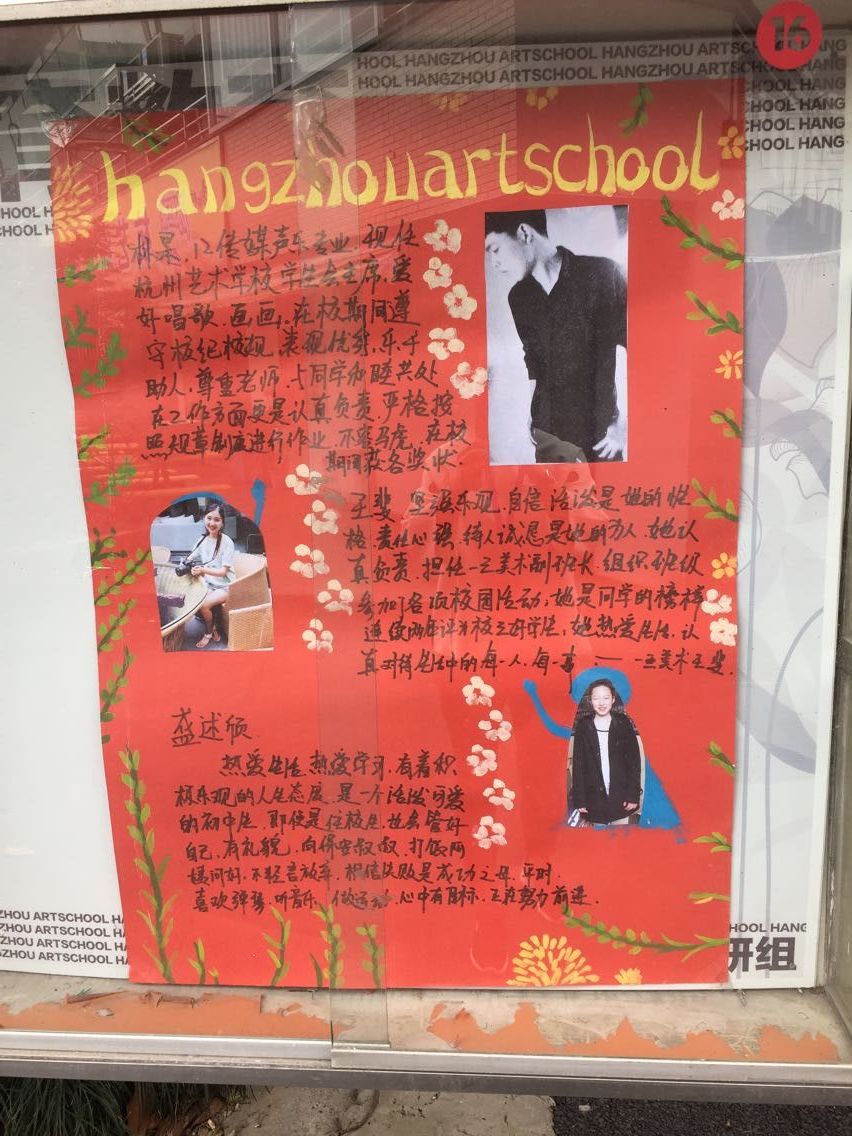 16
HOOL HANGZHOU ARTSCHOOL HANGZHOU ARTSCHOOL HANG
HOOL HANGZHOU ARTSCHOOL HANGZHOU ARTSCHOOL HANG
CHOOL HANG
CHOOL HANG
CHOOL HANG
CHOOL HANG
hangzhouartschool
CHOOL H
SCHOOL H
林杲,12传媒声乐专业,现任
杭州艺术学校学生会主席,爱
好唱歌、画画,在校期间遵
守校纪校规,表现优秀,乐于
助人,尊重老师,与同学和睦共处
在工作方面更是认真负责,严格按
照规章制度进行作业,不容马虎,在校
期间获各奖状.
王斐 坚强乐观,自信活泼是她的性
格,责任心强,待人诚恳是她的为人,她认
真负责,担任一三美术副班长,组织班级
参加了各项校园活动,她是同学的榜样
连续两年评为校三好学生,她热爱生活,认
真对待生活中的每一人,每一事.——一三美术王斐.
盛述颀
热爱生活,热爱学习,有着积
极乐观的人生态度,是一个活泼可爱
的初中生,即使是住校生,也会管好
自己,有礼貌,向保安叔叔,打饭阿
姨问好,不轻言放弃,相信失败是成功之母,平时
喜欢弹琴,听音乐,做运动,心中有目标,正在努力前进.
ZHOU ARTSCHOOL HA
GZHOU ARTSCHOOL H
NGZHOU ARTSCHOOL
GZHOU ARTSCHOOL H
HOOL HANG
研组